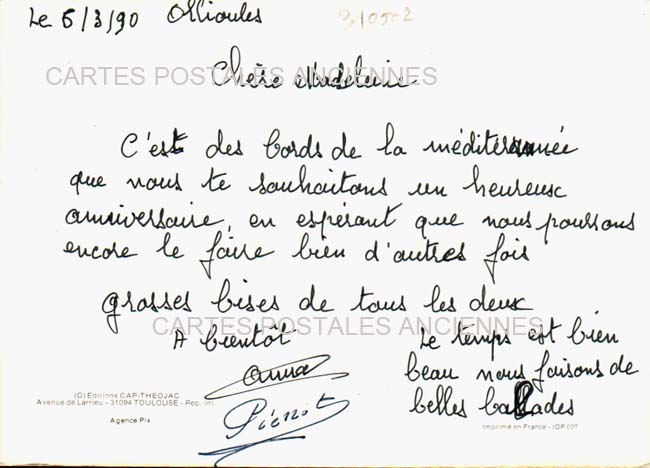 Le 5/3/90 Ollioules
3/0502
CARTES POSTALES ANCIENNES
Chère Madeleine
C'est des bords de la méditerannée
que nous te souhaitons un heureux
anniversaire, en espérant que nous pourrons
encore le faire bien d'autres fois
grosses bises de tous les deux
CARTES POSTALES ANCIENNES
A bientôt
Anna
Pierrot
Le temps est bien
beau nous faisons de
belles ballades
(C) Editions CAP-THEOJAC
Avenue de Larrieu - 31094 TOULOUSE - Rep. Int.
Agence Pix
Imprimé en France - IDP 027